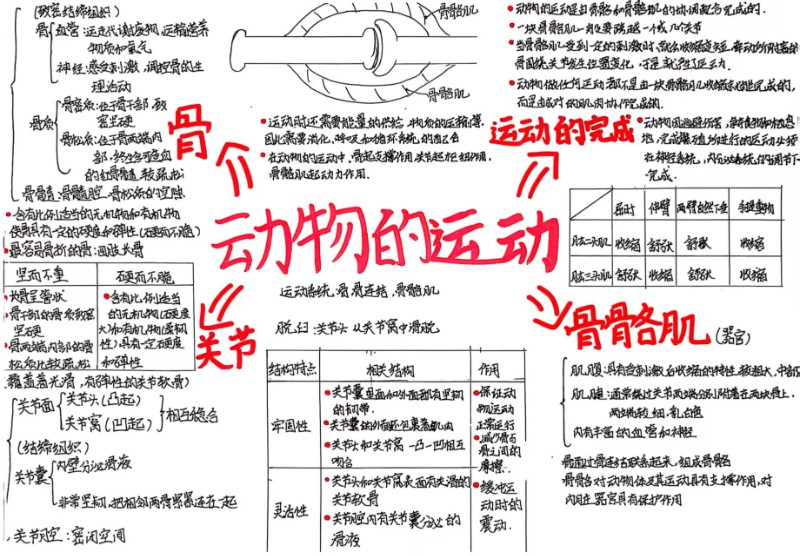 (致密结缔组织)
骨膜
血管:运走代谢废物,运输营养
物质和氧气
神经:感受刺激,调控骨的生
理活动
骨质
骨密质:位于骨干部,致
密坚硬
骨松质:位于骨两端内
部,终生有造血
的红骨髓,较疏松
骨骨髓:骨髓腔、骨松质的空隙
含有比例适当的无机物和有机物
使骨具有一定的硬度和弹性(硬而不脆)
最容易骨折的骨:四肢长骨
坚而不重
硬而不脆
长骨呈管状
骨干部的骨质致密
坚硬
骨两端内部的骨
松质比较疏松
含有比例适当
的无机物(硬度
大)和有机物(柔韧
性),具有一定硬度
和弹性
骨
关节
覆盖着光滑,有弹性的关节软骨)
关节面
关节头(凸起)
关节窝(凹起)
相互吻合
(结缔组织)
关节囊
内壁分泌滑液
非常坚韧,把相邻两骨紧紧连在一起
关节腔:密闭空间
骨骼肌
骨骼肌
运动时还需要能量的供给,物质的运输等,
因此需要消化、呼吸和循环系统的配合
在动物的运动中,骨起支撑作用,关节起枢纽作用,
骨骼肌起动力作用.
动物的运动
运动系统:骨、骨连结、骨骼肌
脱臼:关节头从关节窝中滑脱
结构特点 相关结构 作用
牢固性
关节囊里面和外面都有坚韧
的韧带.
关节囊的外面还包裹着肌肉
关节头和关节窝一凸一凹相互
吻合
灵活性
关节头和关节窝表面有光滑的
关节软骨
关节腔内有关节囊分泌的
滑液
保证动
物运动
正常运行
减少骨与
骨之间的
摩擦.
缓冲运
动时的
震动.
动物的运动是由骨骼和骨骼肌的协调配合完成的.
一块骨骼肌一般要跨越一个或几个关节
当骨骼肌受到一定的刺激时,就会收缩变短,牵动所附着的
骨围绕关节发生位置变化,于是就有了运动.
动物做任何运动都不是由一块骨骼肌收缩就能完成的,
而是由成对的肌肉协作完成的.
运动的完成
在神经系统、内分泌系统的调节下
完成.
屈肘 伸臂 两臂自然下垂
肱二头肌 收缩 舒张 舒张 收缩
肱三头肌 舒张 收缩 舒张 收缩
骨骨各肌 (器官)
肌腹:具有受刺激后收缩的特性,较粗大,中部
肌腱:通常绕过关节两端分别附着在两块骨上,
两端较细,乳白色
内有丰富的血管和神经
骨通过骨连结联系起来,组成骨骼
骨骼对动物体及其运动具有支撑作用,对
内脏器官具有保护作用